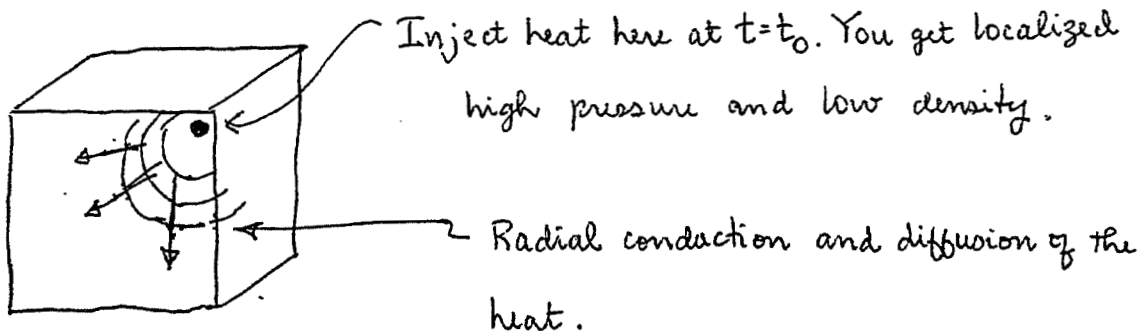 Inject heat here at t=t₀. You get localized
high pressure and low density.
Radial conduction and diffusion of the
heat.